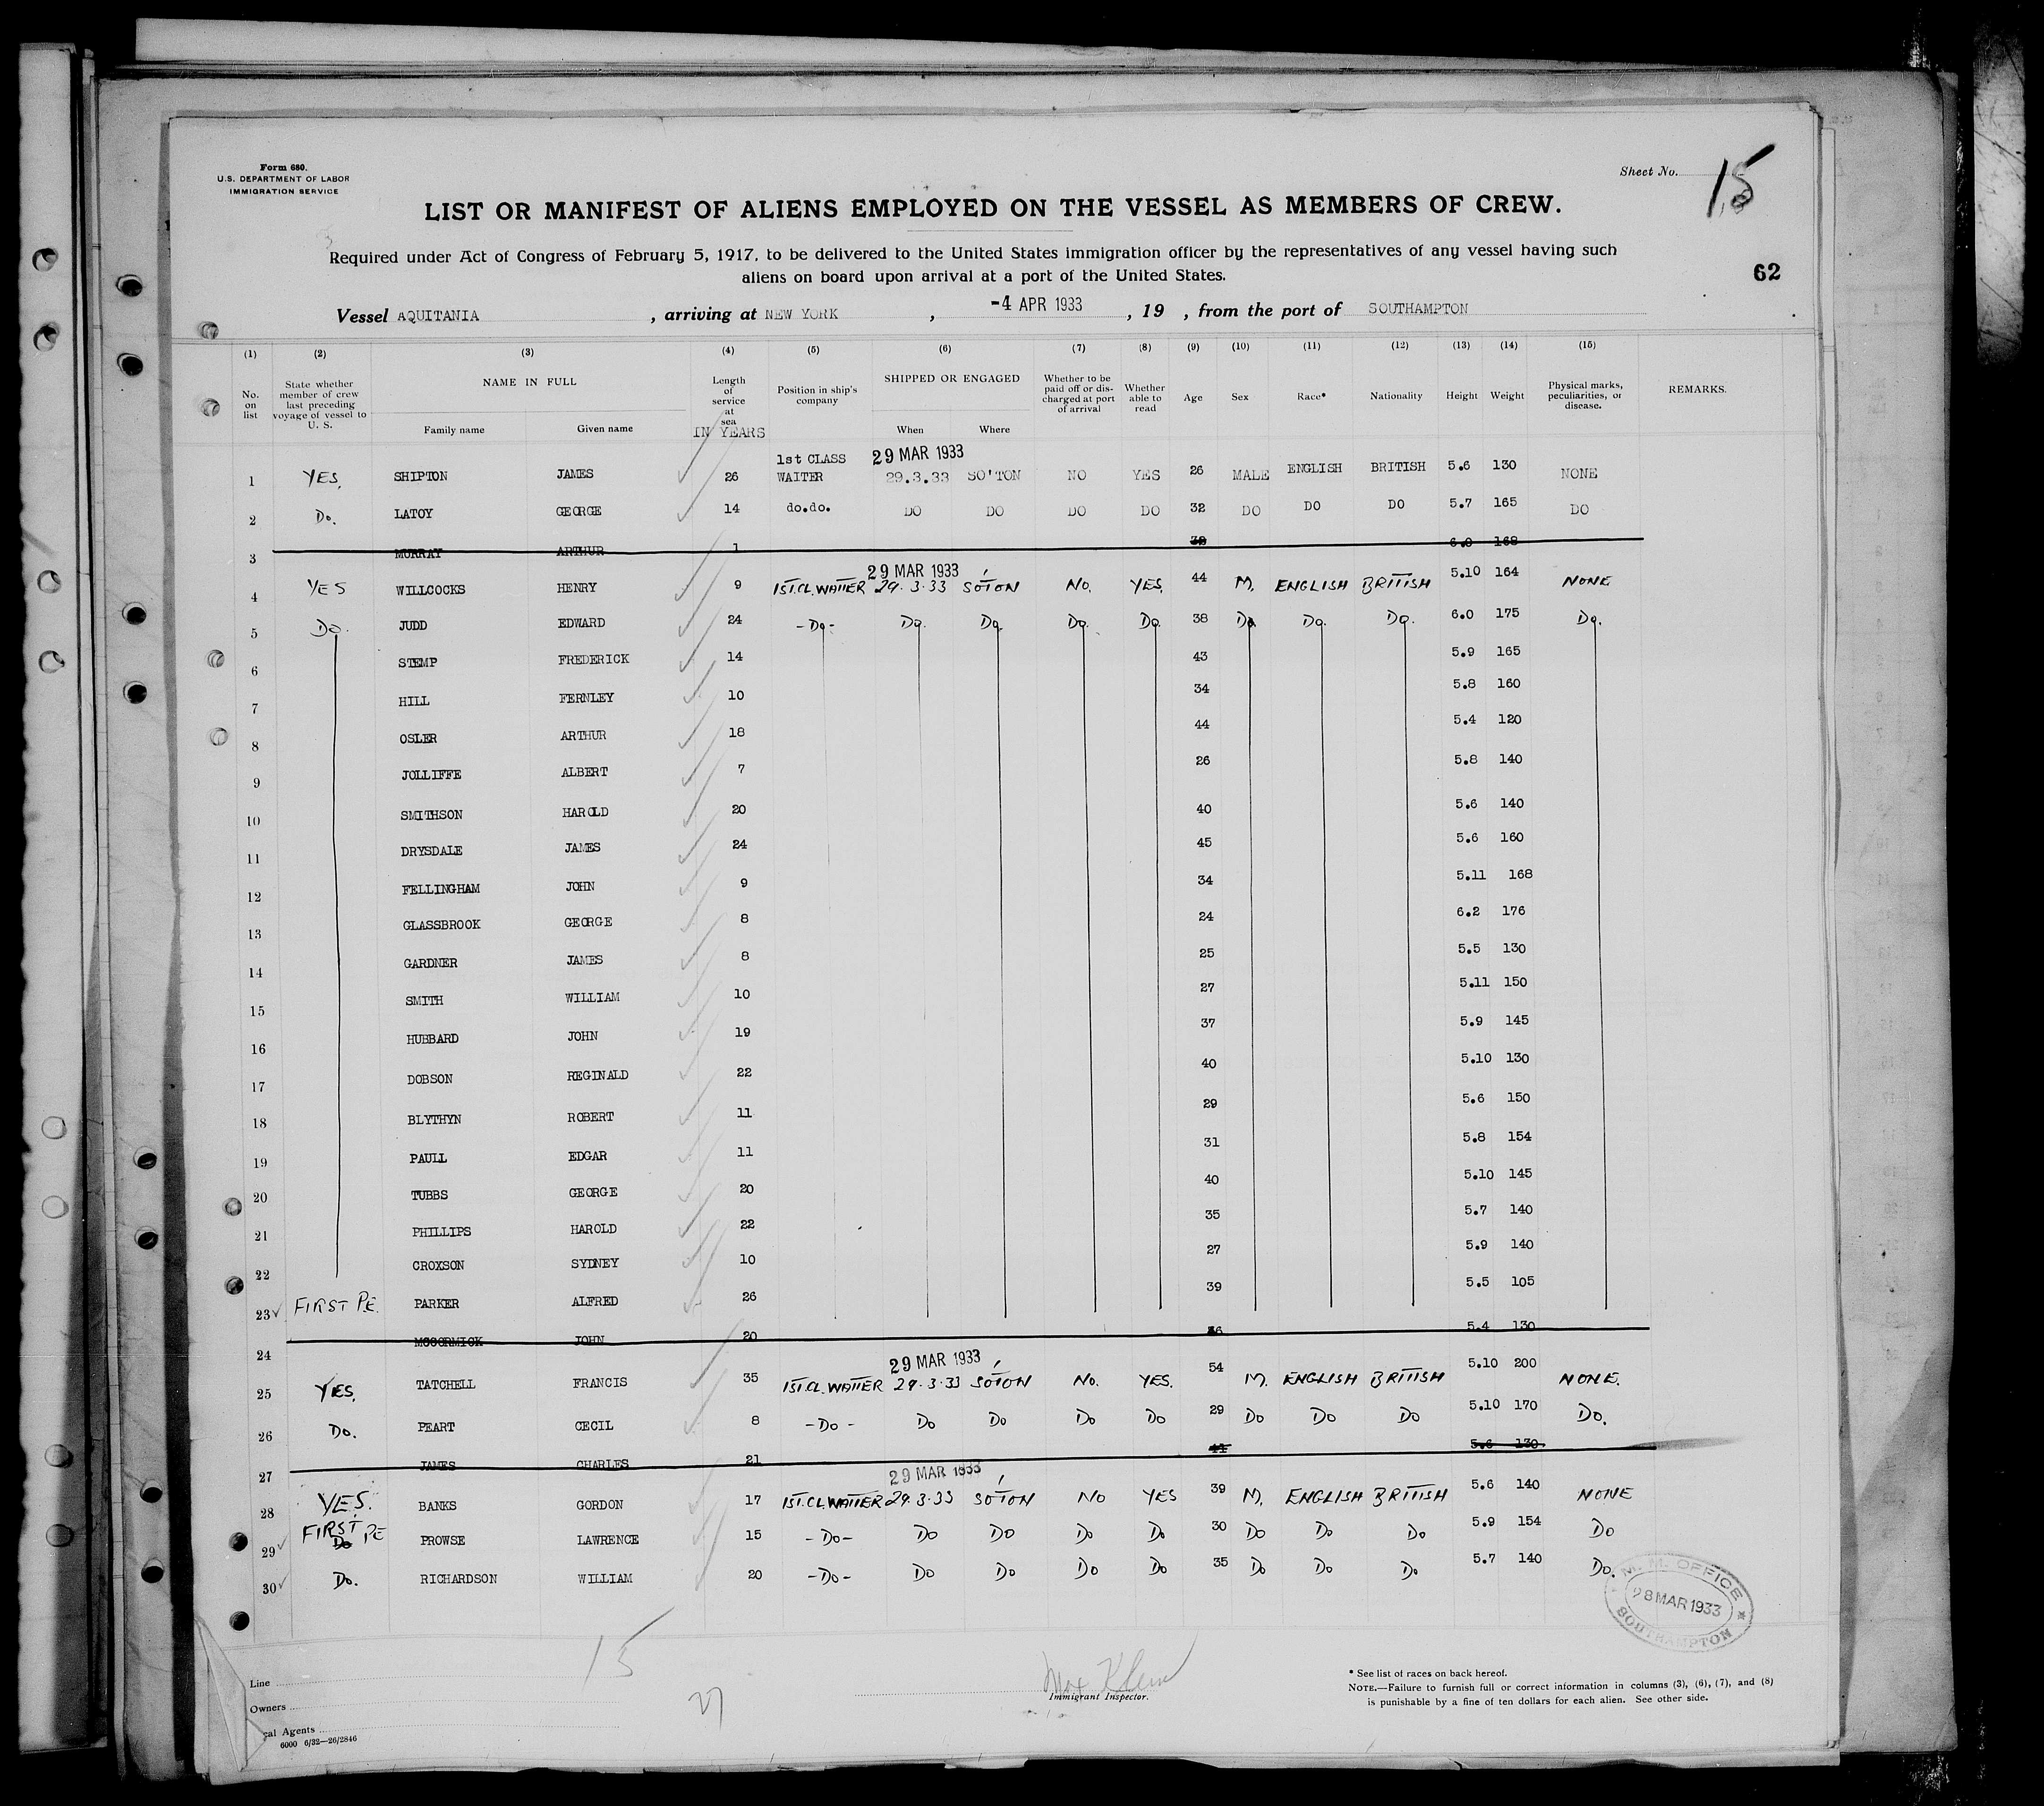 Form 680.
U.S. DEPARTMENT OF LABOR
IMMIGRATION SERVICE
Sheet No. 15
LIST OR MANIFEST OF ALIENS EMPLOYED ON THE VESSEL AS MEMBERS OF CREW.
Required under Act of Congress of February 5, 1917, to be delivered to the United States immigration officer by the representatives of any vessel having such
aliens on board upon arrival at a port of the United States.
62
Vessel AQUITANIA , arriving at NEW YORK , -4 APR 1933 , 19 , from the port of SOUTHAMPTON
(1) (2) (3) (4) (5) (6) (7) (8) (9) (10) (11) (12) (13) (14) (15)
No. on list State whether member of crew last preceding voyage of vessel to U. S. NAME IN FULL Family name Given name Length of service at sea IN YEARS Position in ship's company SHIPPED OR ENGAGED When Where Whether to be paid off or discharged at port of arrival Whether able to read Age Sex Race* Nationality Height Weight Physical marks, peculiarities, or disease. REMARKS.
1st CLASS 29 MAR 1933
1 YES. SHIPTON JAMES 26 WAITER 29.3.33 SO'TON NO YES 26 MALE ENGLISH BRITISH 5.6 130 NONE
2 Do. LATOY GEORGE 14 do.do. DO DO DO DO 32 DO DO DO 5.7 165 DO
3 MURRAY ARTHUR 1 38 6.0 168
29 MAR 1933
4 YES WILLCOCKS HENRY 9 1ST.CL.WAITER 29.3.33 SO'TON NO. YES. 44 M. ENGLISH BRITISH 5.10 164 NONE
5 Do. JUDD EDWARD 24 -Do- Do. Do. Do. Do. 38 Do Do. Do. 6.0 175 Do.
6 STEMP FREDERICK 14 43 5.9 165
7 HILL FERNLEY 10 34 5.8 160
8 OSLER ARTHUR 18 44 5.4 120
9 JOLLIFFE ALBERT 7 26 5.8 140
10 SMITHSON HAROLD 20 40 5.6 140
11 DRYSDALE JAMES 24 45 5.6 160
12 FELLINGHAM JOHN 9 34 5.11 168
13 GLASSBROOK GEORGE 8 24 6.2 176
14 GARDNER JAMES 8 25 5.5 130
15 SMITH WILLIAM 10 27 5.11 150
16 HUBBARD JOHN 19 37 5.9 145
17 DOBSON REGINALD 22 40 5.10 130
18 BLYTHYN ROBERT 11 29 5.6 150
19 PAULL EDGAR 11 31 5.8 154
20 TUBBS GEORGE 20 40 5.10 145
21 PHILLIPS HAROLD 22 35 5.7 140
22 CROXSON SYDNEY 10 27 5.9 140
23 FIRST PE. PARKER ALFRED 26 39 5.5 105
24 MCCORMICK JOHN 20 5.4 130
29 MAR 1933
25 YES. TATCHELL FRANCIS 35 1ST.CL.WAITER 29.3.33 SO'TON NO. YES. 54 M. ENGLISH BRITISH 5.10 200 NONE.
26 Do. PEART CECIL 8 -Do- Do Do Do Do 29 Do Do Do 5.10 170 Do.
27 JAMES CHARLES 21 41 5.6 130
29 MAR 1933
28 YES. BANKS GORDON 17 1ST.CL.WAITER 29.3.33 SO'TON NO YES 39 M. ENGLISH BRITISH 5.6 140 NONE
29 FIRST PE Do PROWSE LAWRENCE 15 -Do- Do Do Do Do 30 Do Do Do 5.9 154 Do
30 Do. RICHARDSON WILLIAM 20 -Do- Do Do Do Do 35 Do Do Do 5.7 140 Do.
M. M. OFFICE
28 MAR 1933
SOUTHAMPTON
15
27
Max Klein
Immigrant Inspector.
Line
Owners
cal Agents
6000 6/32—26/2846
* See list of races on back hereof.
NOTE.—Failure to furnish full or correct information in columns (3), (6), (7), and (8)
is punishable by a fine of ten dollars for each alien. See other side.